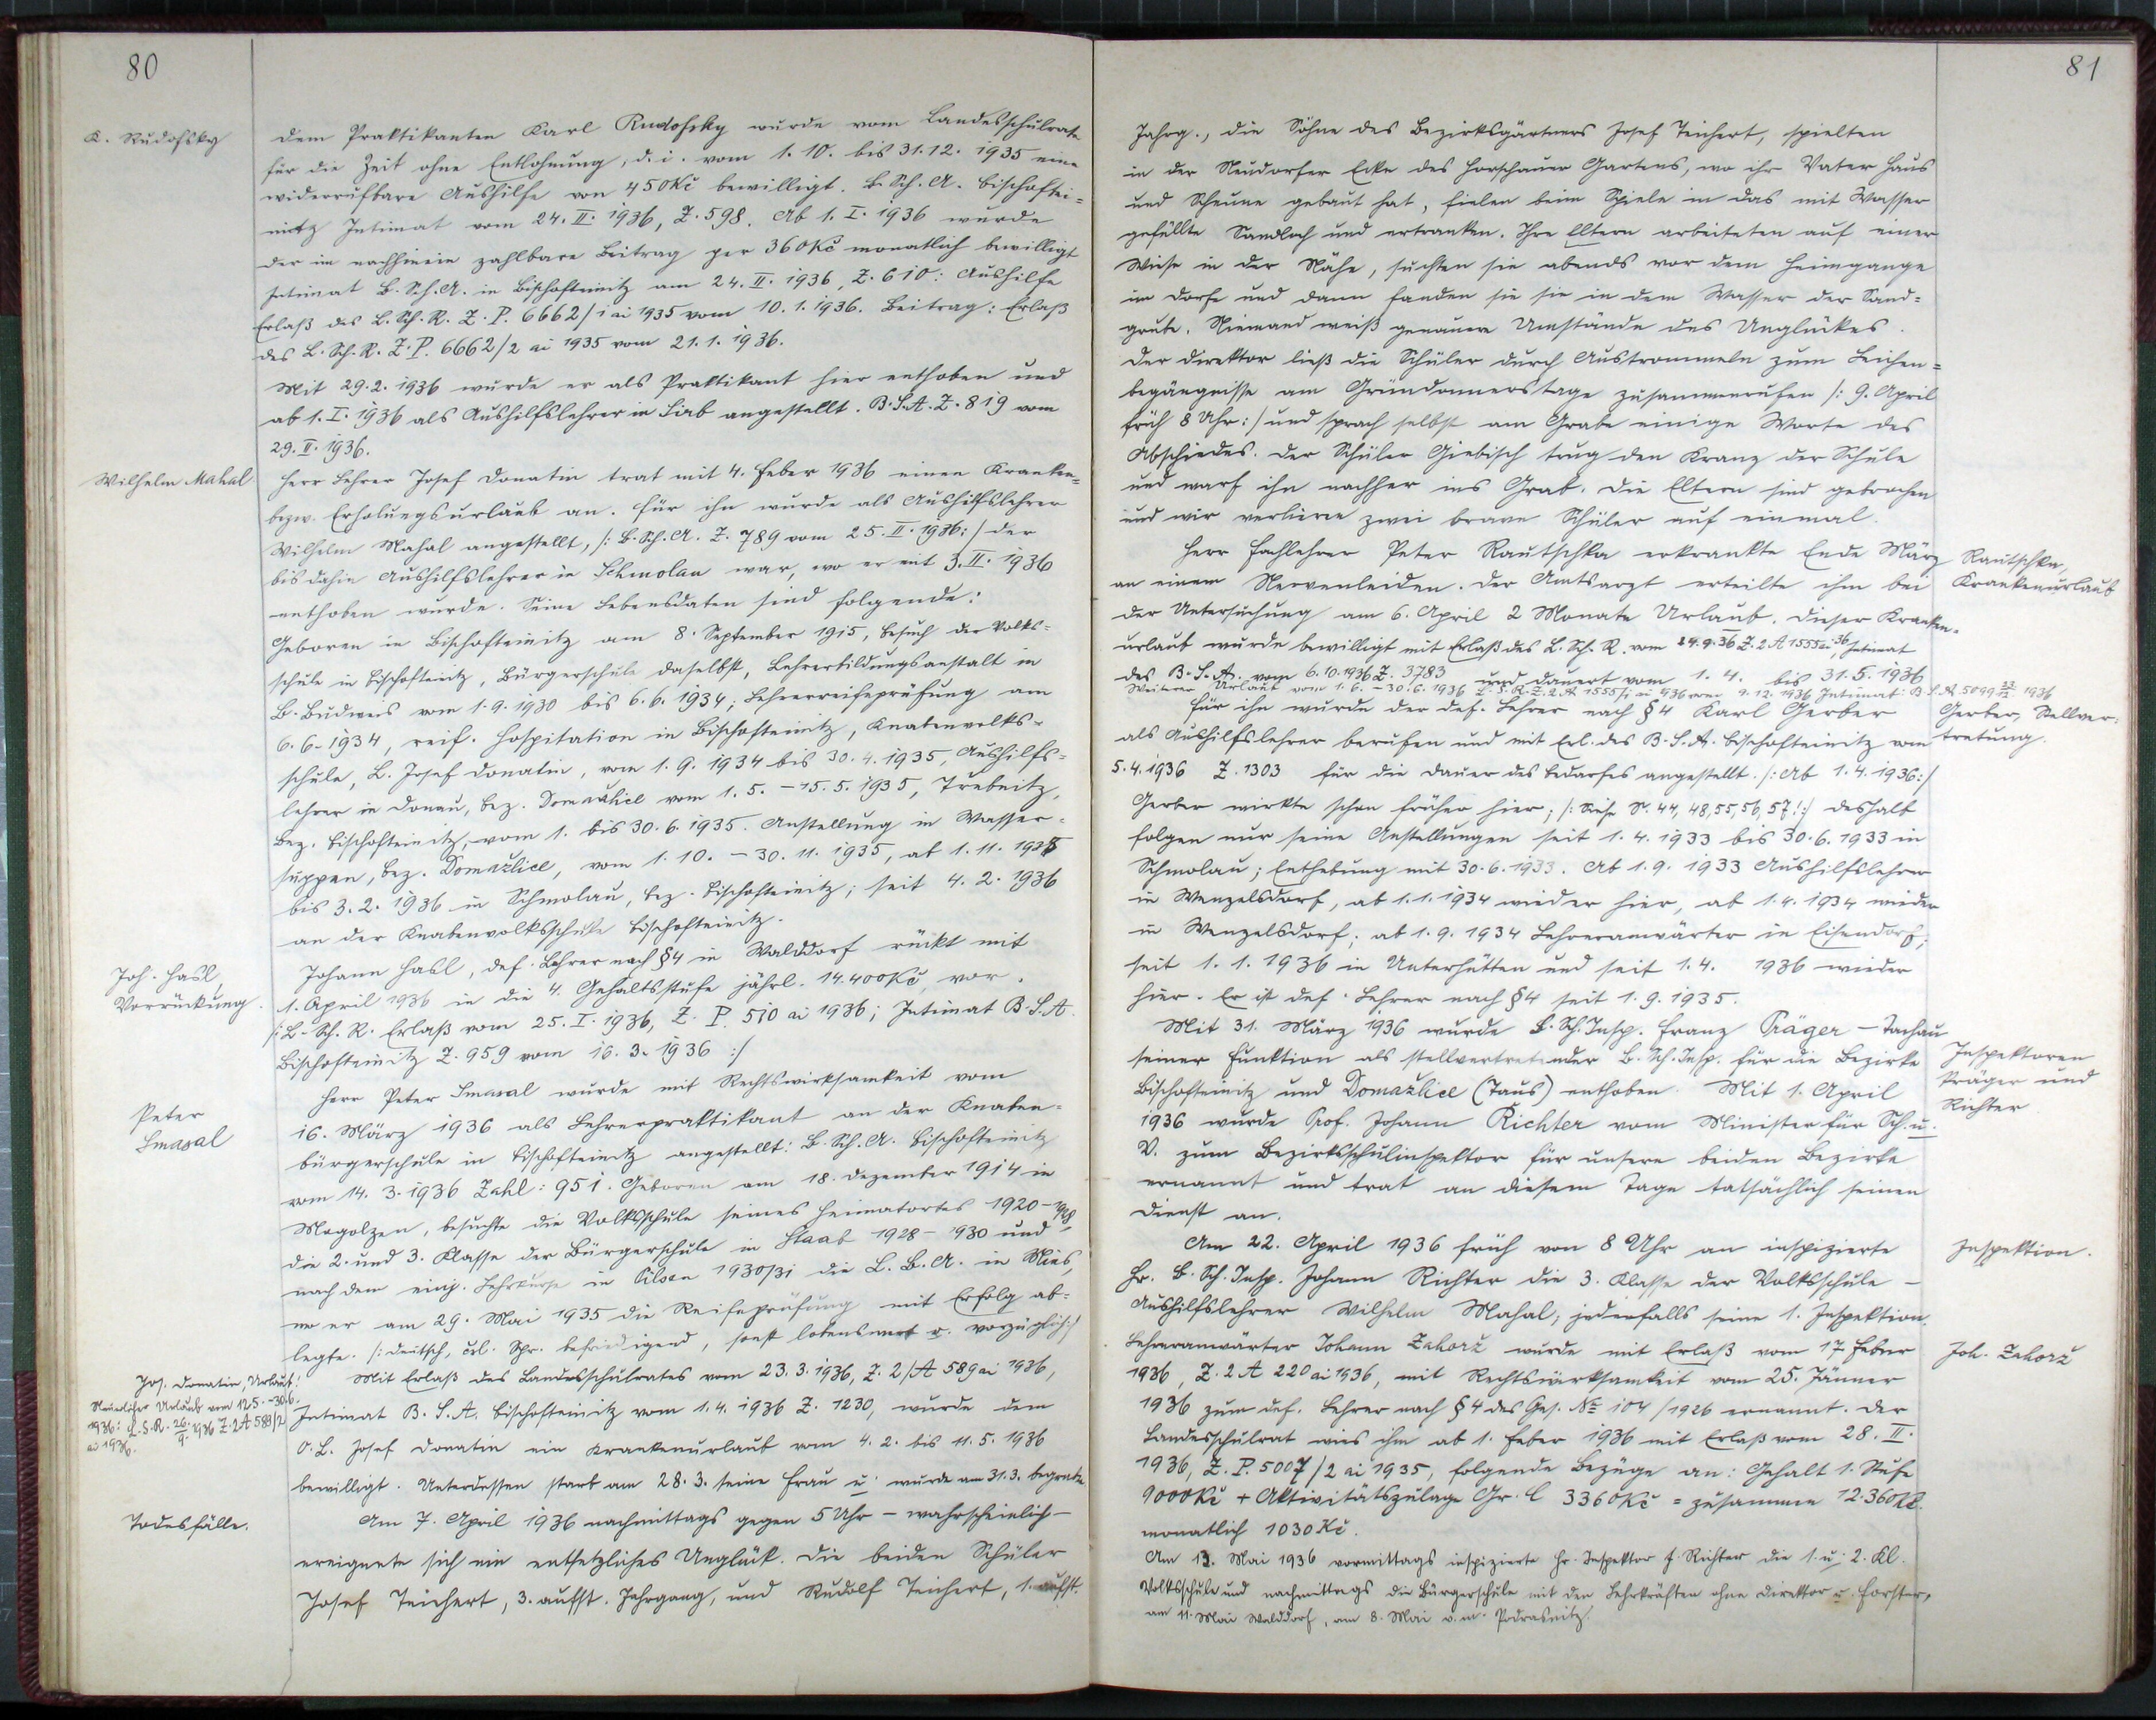 80
K. Rudofsky
Dem Praktikanten Karl Rudofsky wurde vom Landesschulrate
für die Zeit ohne Entlohnung, d. i. vom 1. 10. bis 31. 12. 1935 eine
widerrufbare Aushilfe von 450 Kč bewilligt. B. Sch. A. Bischoftei=
nitz Intimat vom 24. II. 1936, Z. 598. Ab 1. I. 1936 wurde
der im nachhinein zahlbare Beitrag per 360 Kč monatlich bewilligt
Intimat B. Sch. A. in Bischofteinitz am 24. II. 1936, Z. 610: Aushilfe
Erlaß des L. Sch. R. Z. P. 6662/1 ai 1935 vom 10. 1. 1936. Beitrag: Erlaß
des L. Sch. R. Z. P. 6662/2 ai 1935 vom 21. 1. 1936.
Mit 29. 2. 1936 wurde er als Praktikant hier enthoben und
ab 1. I. 1936 als Aushilfslehrer in angestellt. B. S. A. Z. 819 vom
29. II. 1936.
Wilhelm Mahal
Herr Lehrer Josef Donatin trat mit 4. Feber 1936 einen Kranken=
bezw. Erholungsurlaub an. Für ihn wurde als Aushilfslehrer
Wilhelm Mahal angestellt, /: B. Sch. A. Z. 789 vom 25. II. 1936 :/ der
bis dahin Aushilfslehrer in Schmolau war, wo er mit 3. II. 1936
enthoben wurde. Seine Lebensdaten sind folgende:
Geboren in Bischofteinitz am 8. September 1915, Besuch der Volks=
schule in Bischofteinitz, Bürgerschule daselbst, Lehrerbildungsanstalt in
B. Budweis vom 1. 9. 1930 bis 6. 6. 1934; Lehrerreifeprüfung am
6. 6. 1934, reif. Hospitation in Bischofteinitz, Knabenvolks=
schule, L. Josef Donatin, vom 1. 9. 1934 bis 30. 4. 1935, Aushilfs=
lehrer in Donau, Bez. Domažlice vom 1. 5. – 15. 5. 1935, Trebnitz,
Bez. Bischofteinitz, vom 1. bis 30. 6. 1935. Anstellung in Wasser=
suppen, Bez. Domažlice, vom 1. 10. – 30. 11. 1935, ab 1. 11. 1935
bis 3. 2. 1936 in Schmolau, Bez. Bischofteinitz; seit 4. 2. 1936
an der Knabenvolksschule Bischofteinitz.
Joh. Hasl,
Vorrückung.
Johann Hasl, def. Lehrer nach § 4 in Walddorf rückt mit
1. April 1936 in die 4. Gehaltsstufe jährl. 14.400 Kč, vor.
/: L. Sch. R. Erlaß vom 25. I. 1936, Z. P. 510 ai 1936; Intimat B. S. A.
Bischofteinitz Z. 959 vom 16. 3. 1936 :/
Peter
Smasal
Herr Peter Smasal wurde mit Rechtswirksamkeit vom
16. März 1936 als Lehrerpraktikant an der Knaben=
bürgerschule in Bischofteinitz angestellt: B. Sch. A. Bischofteinitz
vom 14. 3. 1936 Zahl: 951. Geboren am 18. Dezember 1914 in
Mogolzen, besuchte die Volksschule seines Heimatortes 1920–1928,
die 2. und 3. Klasse der Bürgerschule in Staab 1928–1930 und
nach dem einj. Lehrkurse in Pilsen 1930/31 die L. B. A. in Mies,
wo er am 29. Mai 1935 die Reifeprüfung mit Erfolg ab=
legte. /: Deutsch, Spr. befriedigend, sonst lobenswert u. vorzüglich :/
Jos. Donatin, Urlaub!
Neuerlicher Urlaub vom 12.5.–30.6.
1936: L. S. R. 26./9. 1936 Z. 2 A 589/2
ai 1936.
Mit Erlaß des Landesschulrates vom 23. 3. 1936, Z. 2/A 589 ai 1936,
Intimat B. S. A. Bischofteinitz vom 1. 4. 1936 Z. 1230, wurde dem
O. L. Josef Donatin ein Krankenurlaub vom 4. 2. bis 11. 5. 1936
bewilligt. Unterdessen starb am 28. 3. seine Frau u. wurde am 31. 3. begraben.
Todesfälle.
Am 7. April 1936 nachmittags gegen 5 Uhr – wahrscheinlich –
ereignete sich ein entsetzliches Unglück. Die beiden Schüler
Josef Teichert, 3. aufst. Jahrgang, und Rudolf Teichert, 1. aufst.
81
Jahrg., die Söhne des Bezirksgärtners Josef Teichert, spielten
in der Neudorfer Ecke des Horschauer Gartens, wo ihr Vater Haus
und Scheune gebaut hat, fielen beim Spiele in das mit Wasser
gefüllte Sandloch und ertranken. Ihre Eltern arbeiteten auf einer
Wiese in der Nähe, suchten sie abends vor dem Heimgange
im Dorfe und dann fanden sie sie in dem Wasser der Sand=
grube. Niemand weiß genauere Umstände des Unglückes.
Der Direktor ließ die Schüler durch Austrommeln zum Leichen=
begängnisse am Gründonnerstage zusammenrufen /: 9. April
früh 8 Uhr :/ und sprach selbst am Grabe einige Worte des
Abschiedes. Der Schüler Giebisch trug den Kranz der Schule
und warf ihn nachher ins Grab. Die Eltern sind gebrochen
und wir verlieren zwei brave Schüler auf einmal.
Herr Fachlehrer Peter Rautschka erkrankte Ende März
Rautschka,
Krankenurlaub
an einem Nervenleiden. Der Amtsarzt erteilte ihm bei
der Untersuchung am 6. April 2 Monate Urlaub. Dieser Kranken=
urlaub wurde bewilligt mit Erlaß des L. Sch. R. vom 29. 9. 36 Z. 2 A 1555 ai 36, Intimat
des B. S. A. vom 6. 10. 1936 Z. 3783 und dauert vom 1. 4. bis 31. 5. 1936
Weiterer Urlaub vom 1. 6. – 30. 6. 1936 L. S. R. Z. 2 A 1555/1 ai 1936 vom 9. 12. 1936 Intimat: B. S. A. 5099 23/12 1936
Für ihn wurde der def. Lehrer nach § 4 Karl Gerber
Gerber, Stellver=
tretung.
als Aushilfslehrer berufen und mit Erl. des B. S. A. Bischofteinitz vom
5. 4. 1936 Z. 1303 für die Dauer des Bedarfes angestellt. /: Ab 1. 4. 1936 :/
Gerber wirkte schon früher hier; /: Siehe S. 44, 48, 55, 56, 57! :/ deshalb
folgen nur seine Anstellungen seit 1. 4. 1933 bis 30. 6. 1933 in
Schmolau; Enthebung mit 30. 6. 1933. Ab 1. 9. 1933 Aushilfslehrer
in Wenzelsdorf, ab 1. 1. 1934 wieder hier, ab 1. 4. 1934 wieder
in Wenzelsdorf; ab 1. 9. 1934 Lehreranwärter in Eisendorf;
seit 1. 1. 1936 in Unterhütten und seit 1. 4. 1936 wieder
hier. Er ist def. Lehrer nach § 4 seit 1. 9. 1935.
Mit 31. März 1936 wurde B. Sch. Insp. Franz Präger – Tachau
Inspektoren
Präger und
Richter
seiner Funktion als stellvertretender B. Sch. Insp. für die Bezirke
Bischofteinitz und Domažlice (Taus) enthoben. Mit 1. April
1936 wurde Prof. Johann Richter vom Minister für Sch. u.
V. zum Bezirksschulinspektor für unsere beiden Bezirke
ernannt und trat an diesem Tage tatsächlich seinen
Dienst an.
Am 22. April 1936 früh von 8 Uhr an inspizierte
Inspektion.
Hr. B. Sch. Insp. Johann Richter die 3. Klasse der Volksschule –
Aushilfslehrer Wilhelm Mahal, jedenfalls seine 1. Inspektion.
Lehreranwärter Johann Zahorž wurde mit Erlaß vom 17. Feber
Joh. Zahorž
1936, Z. 2 A 220 ai 1936, mit Rechtswirksamkeit vom 25. Jänner
1936 zum def. Lehrer nach § 4 des Ges. No 104/1926 ernannt. Der
Landesschulrat wies ihm ab 1. Feber 1936 mit Erlaß vom 28. II.
1936, Z. P. 5007/2 ai 1935, folgende Bezüge an: Gehalt 1. Stufe
9000 Kč + Aktivitätszulage Gr. C 3360 Kč = zusammen 12.360 Kč.
monatlich 1030 Kč.
Am 13. Mai 1936 vormittags inspizierte Hr. Inspektor J. Richter die 1. u. 2. Kl.
Volksschule und nachmittags die Bürgerschule mit den Lehrkräften ohne Direktor u. Forster,
am 11. Mai Walddorf, am 8. Mai v. m. Podrasnitz.